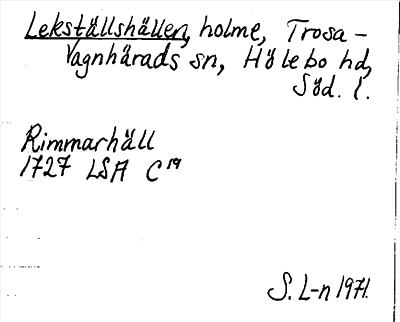 Lekställshällen, holme, Trosa-
Vagnhärads sn, Hölebo hd,
Söd. l.
Rimmarhäll
1727 LSA C19
S. L-n 1971.